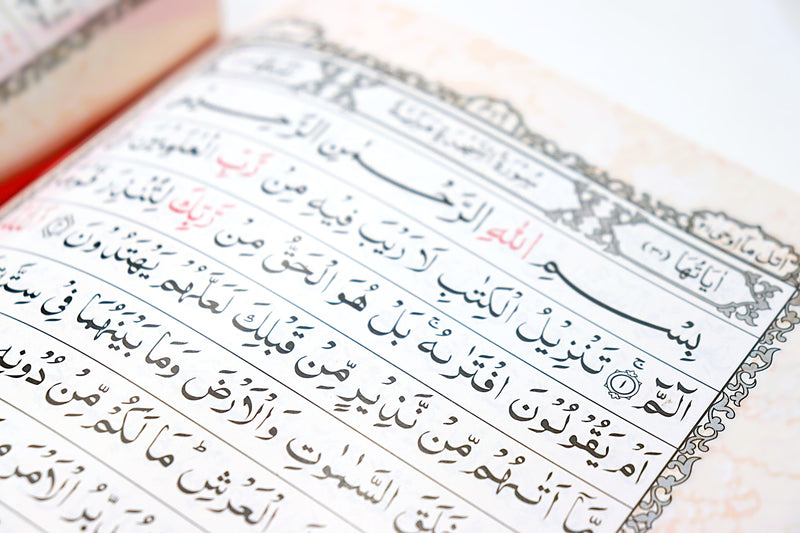 اتل ما اوحی ۲۱
اٰيَاتُهَا (۳۰) سُوْرَةُ السَّجْدَةِ مَكِّيَّةٌ
بِسْمِ اللهِ الرَّحْمٰنِ الرَّحِيْمِ
الٓمّٓ ۚ ﴿۱﴾ تَنْزِيْلُ الْكِتٰبِ لَا رَيْبَ فِيْهِ مِنْ رَّبِّ الْعٰلَمِيْنَ
اَمْ يَقُوْلُوْنَ افْتَرٰىهُ ۚ بَلْ هُوَ الْحَقُّ مِنْ رَّبِّكَ لِتُنْذِرَ
مَّآ اَتٰىهُمْ مِّنْ نَّذِيْرٍ مِّنْ قَبْلِكَ لَعَلَّهُمْ يَهْتَدُوْنَ
خَلَقَ السَّمٰوٰتِ وَالْاَرْضَ وَمَا بَيْنَهُمَا فِيْ
الْعَرْشِ ؕ مَا لَكُمْ مِّنْ دُوْنِهٖ
الْاَمْرَ